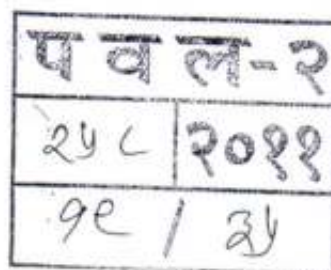 प व ल-२
२५८ २०११
१९ / ३५